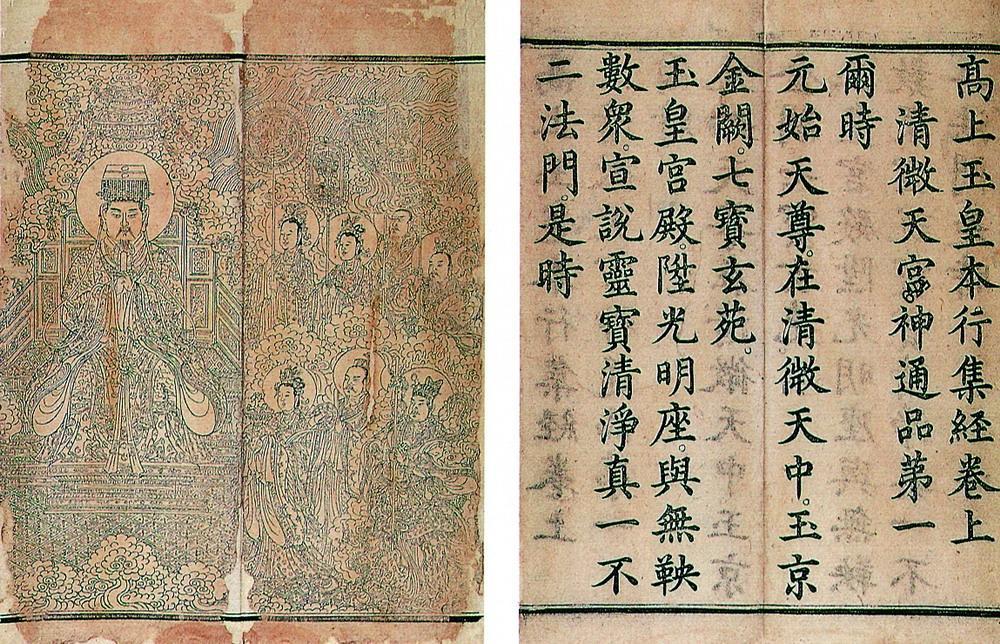 高上玉皇本行集經卷上
清微天宮神通品第一
爾時
元始天尊。在清微天中。玉京
金闕。七寶玄苑。
玉皇宮殿。陞光明座。與無鞅
數衆。宣説靈寶清淨真一不
二法門。是時